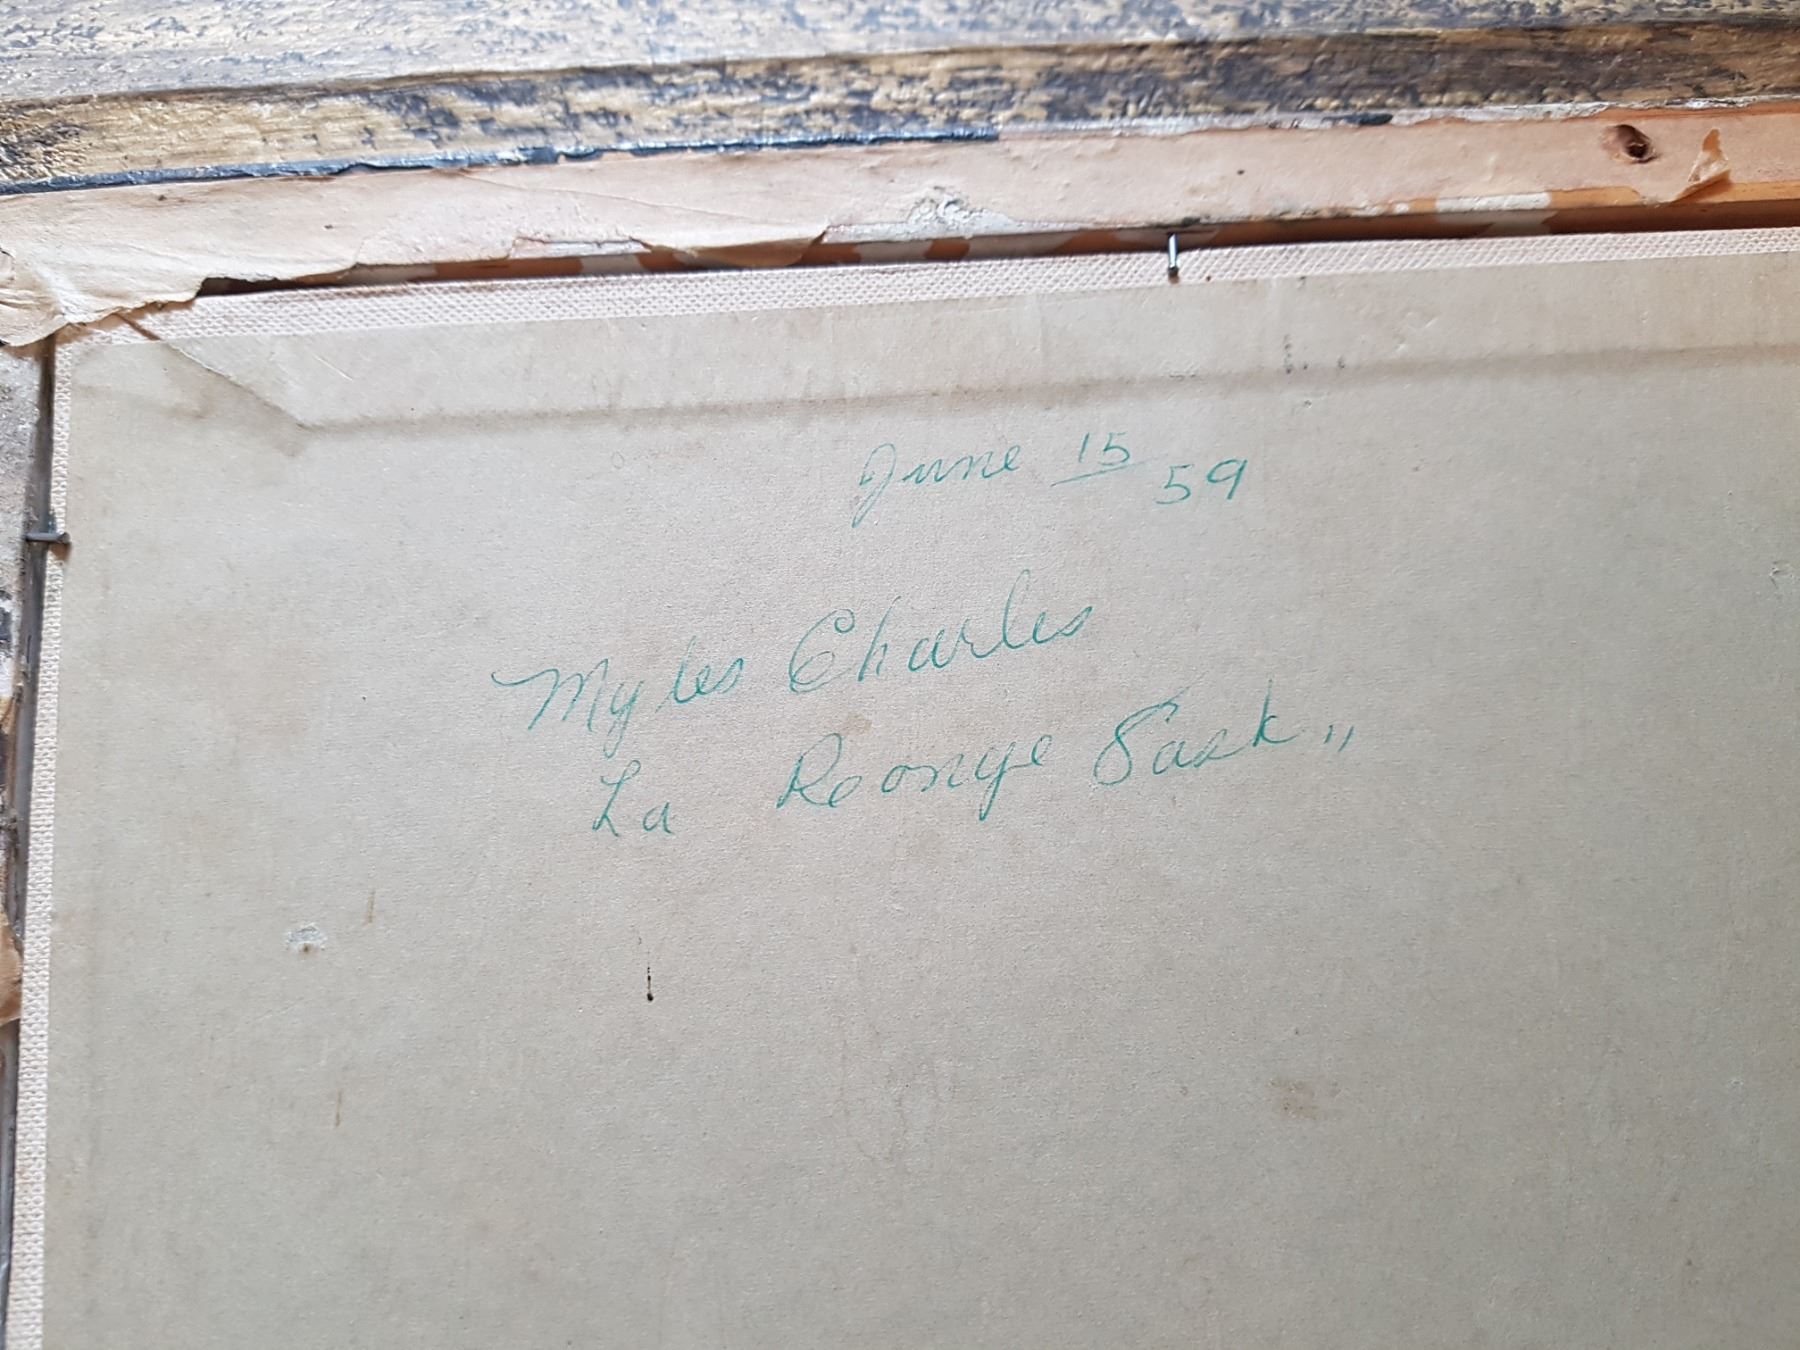 June 15 59
Myles Charles
La Reonge Sask "